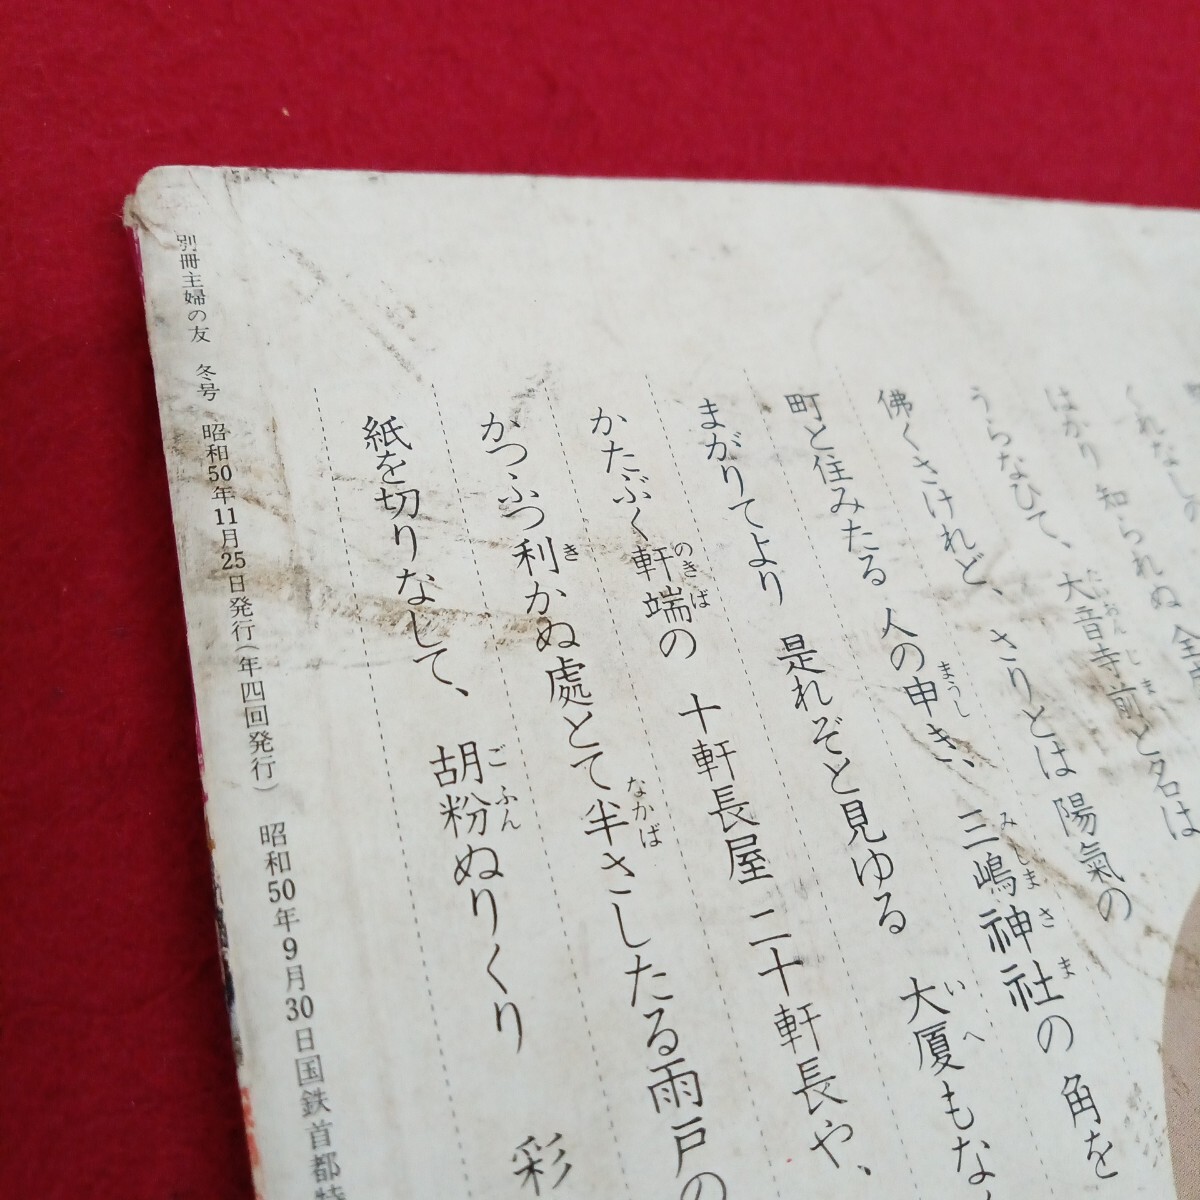 くれなしの
はかり知られぬ全
うらなひて、大音寺前と名は
佛くさけれど、さりとは陽氣の
町と住みたる人の申き、三嶋神社の角を
まがりてより是れぞと見ゆる大厦もなく
かたぶく軒端の十軒長屋二十軒長や、
かつふつ利かぬ處とて半さしたる雨戸の
紙を切りなして、胡粉ぬりくり彩
別冊主婦の友 冬号 昭和50年11月25日発行(年四回発行) 昭和50年9月30日国鉄首都特